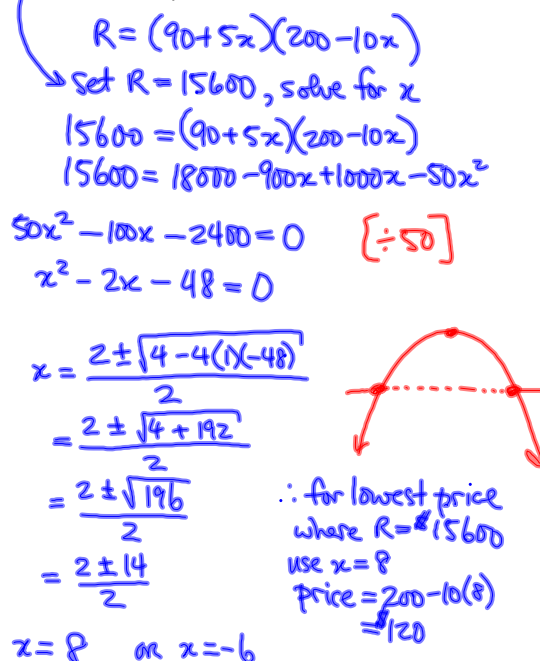 R = (90+5x)(200-10x)
set R = 15600, solve for x
15600 = (90+5x)(200-10x)
15600 = 18000 -900x+1000x -50x²
50x² -100x -2400 = 0 [÷50]
x² - 2x - 48 = 0
x = (2 ± √(4 - 4(1)(-48)))/2
= (2 ± √(4 + 192))/2
= (2 ± √196)/2
= (2 ± 14)/2
x = 8 or x = -6
∴ for lowest price
where R = $15600
use x = 8
price = 200-10(8)
= $120